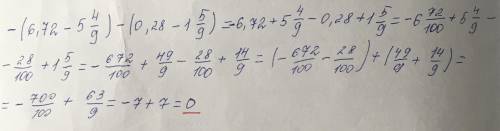 -(6,72 - 5 4/9) - (0,28 - 1 5/9) = -6,72 + 5 4/9 - 0,28 + 1 5/9 = -6 72/100 + 5 4/9 -
- 28/100 + 1 5/9 = - 672/100 + 49/9 - 28/100 + 14/9 = (- 672/100 - 28/100) + (49/9 + 14/9) =
= - 700/100 + 63/9 = -7 + 7 = 0